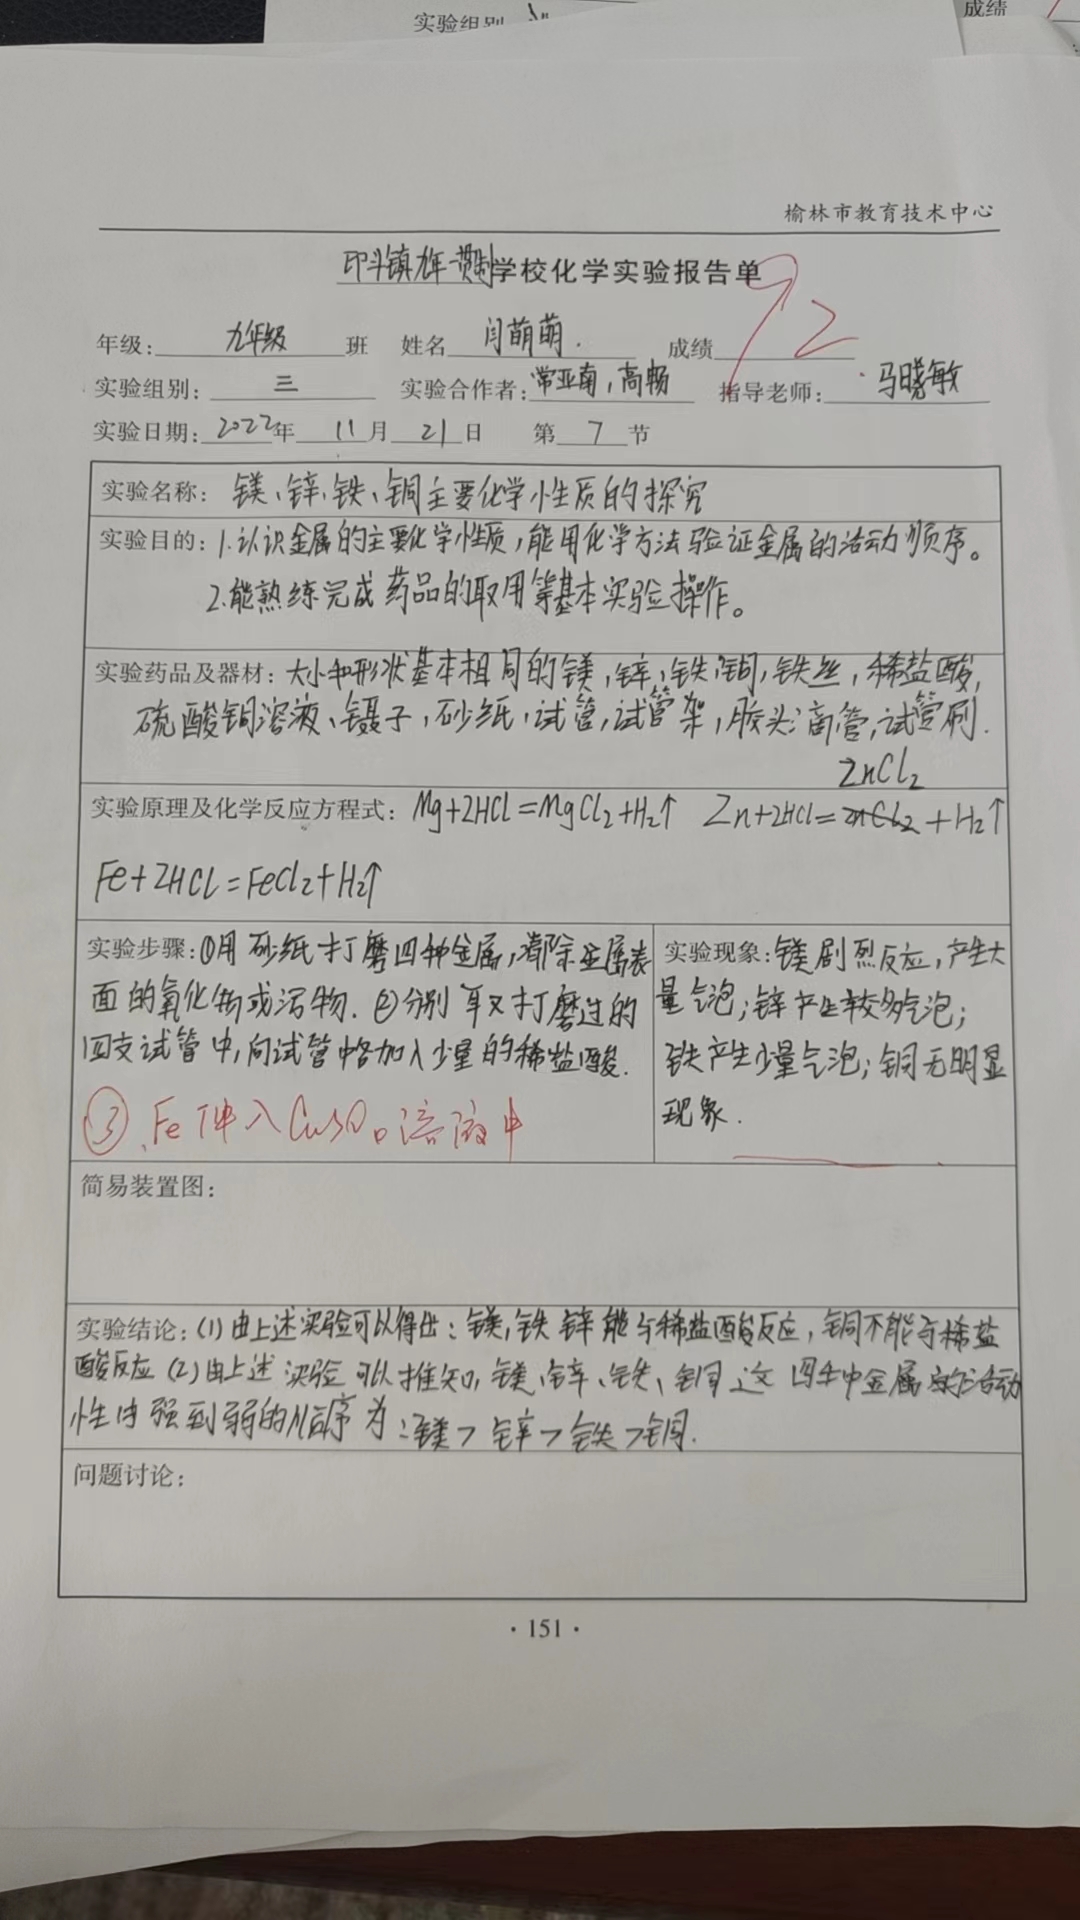 实验组别
成绩
榆林市教育技术中心
印斗镇九年一贯制学校化学实验报告单
92
年级:九年级 班 姓名 闫萌萌. 成绩
实验组别: 三 实验合作者:常亚南,高畅 指导老师: 马晓敏
实验日期: 2022年 11月 21日 第 7 节
实验名称: 镁、锌、铁、铜主要化学性质的探究
实验目的: 1.认识金属的主要化学性质,能用化学方法验证金属的活动顺序。
2.能熟练完成药品的取用等基本实验操作。
实验药品及器材: 大小和形状基本相同的镁,锌,铁,铜,铁丝,稀盐酸,
硫酸铜溶液、镊子,砂纸,试管,试管架,胶头滴管,试管刷.
ZnCl₂
实验原理及化学反应方程式: Mg+2HCl=MgCl₂+H₂↑ Zn+2HCl=znCl₂+H₂↑
Fe+2HCl=FeCl₂+H₂↑
实验步骤:①用砂纸打磨四种金属,消除金属表
面的氧化物或污物.②分别取打磨过的
四支试管中,向试管中各加入少量的稀盐酸.
③.Fe 伸入CuSO₄溶液中
实验现象:镁剧烈反应,产生大
量气泡;锌产生较多气泡;
铁产生少量气泡;铜无明显
现象.
简易装置图:
实验结论:(1)由上述实验可以得出:镁,铁 锌能与稀盐酸反应,铜不能与稀盐
酸反应(2)由上述实验可以推知,镁、锌、铁、铜这四种金属活动
性由强到弱的顺序为:镁>锌>铁>铜.
问题讨论:
·151·